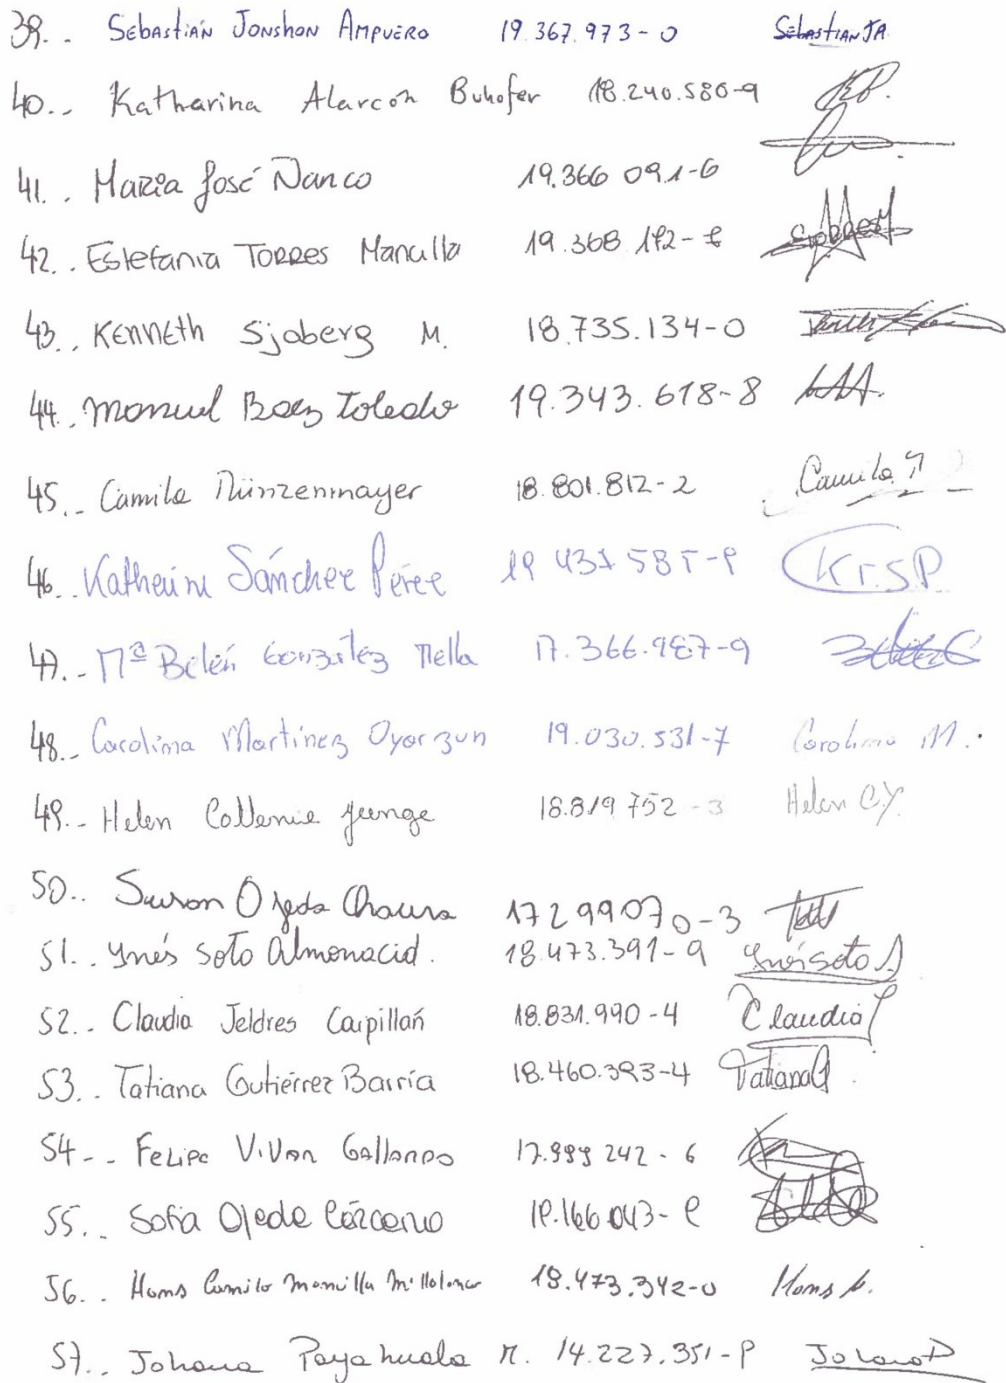 39.. Sebastián Jonshon Ampuero 19.367.973-0 Sebastian JA
40.. Katharina Alarcón Buhofer 18.240.586-9
41.. María José Ñanco 19.366 091-6
42.. Estefania Torres Mancilla 19.368.172-
43.. Kenneth Sjoberg M. 18.735.134-0
44.. Manuel Baez Toledo 19.343.618-8
45.. Camila Münzenmayer 18.801.812-2 Camila
46.. Katherine Sánchez Pérez 19 437 585-9 K.T.S.P.
47.- Mª Belén González Mella 17.366.987-9
48.. Carolina Martinez Oyarzun 19.030.531-7 Carolina M.
49.. Helen Junge 18.819 752-3 Helen C.Y.
50.. Suson Ojeda Chaura 17299070-3
51.. Ynés Soto Almonacid. 18.473.391-9 Ynés Soto A
52.. Claudia Jeldres Caipillañ 18.831.990-4 Claudia J
53.. Tatiana Gutiérrez Barría 18.460.393-4 Tatiana G
54-. Felipe Vivar Gallardo 17.999 242-6
55.. Sofia Ojeda Cárcamo 19.166.043-
56.. Hans Camilo Mancilla Millalonco 18.473.342-0 Hans
57.. Johana Payahuala M. 14.227.351-9 Johana P